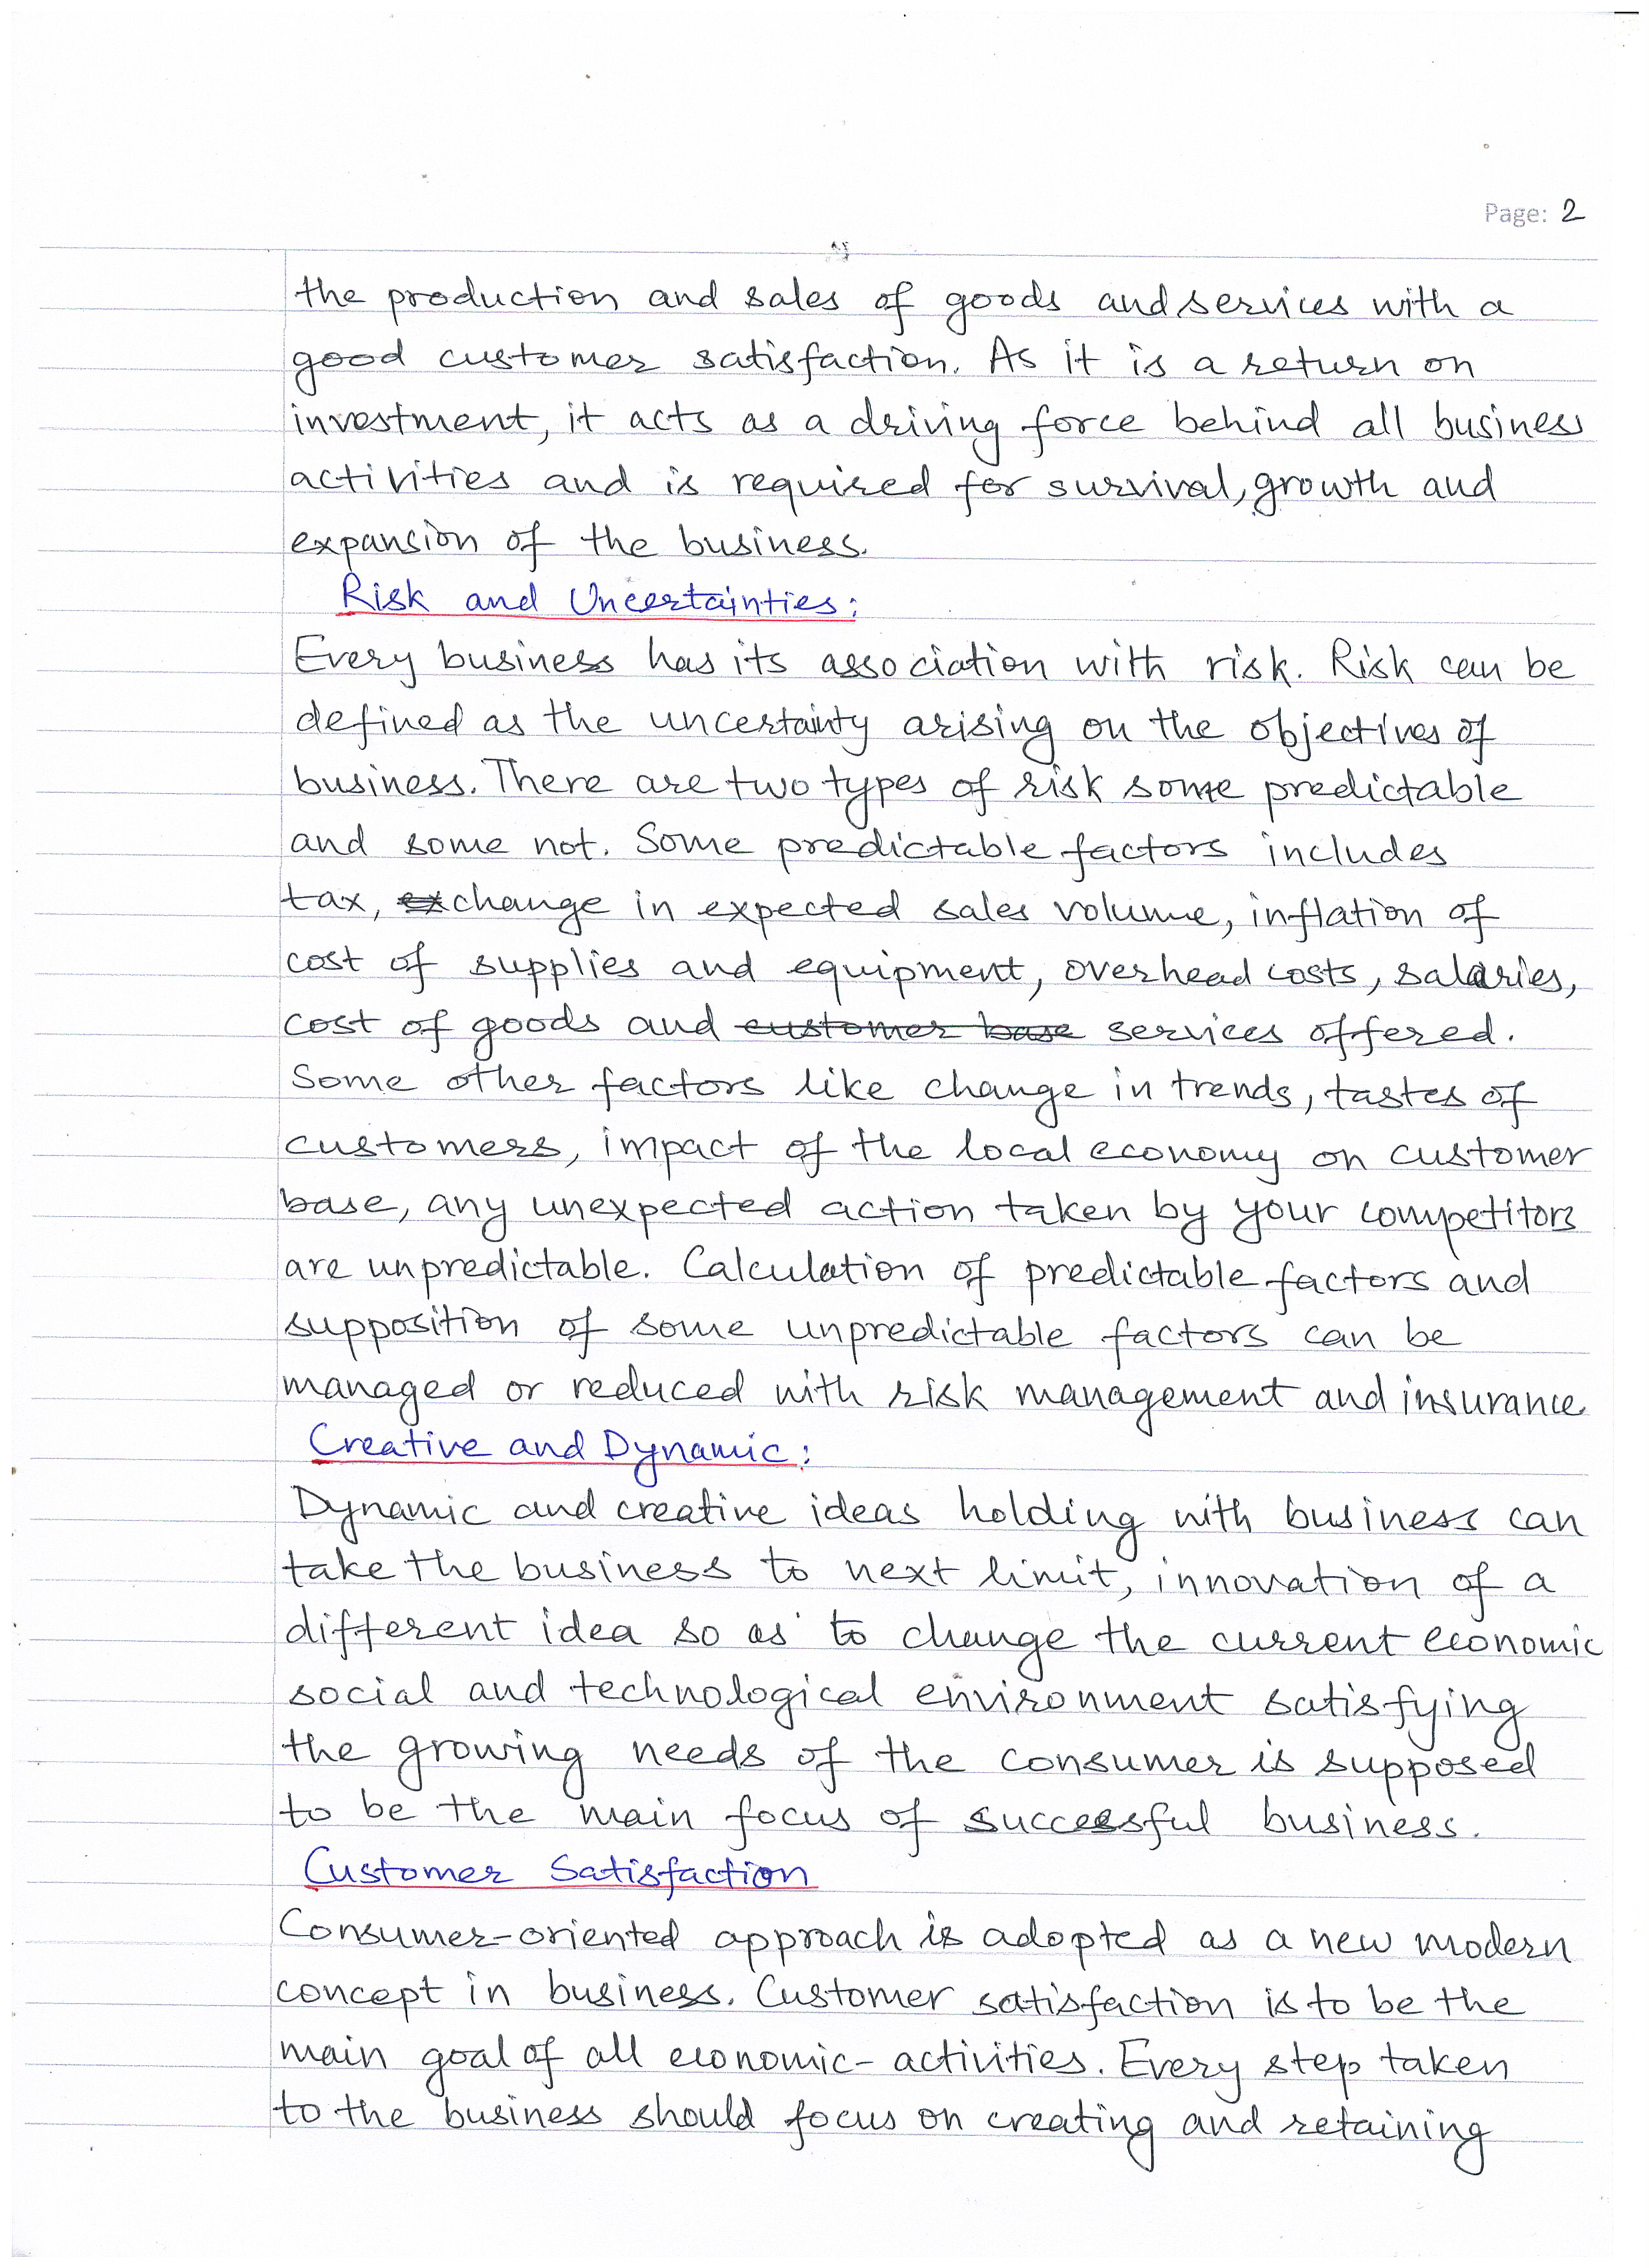 Page: 2
the production and sales of goods and services with a
good customer satisfaction. As it is a return on
investment, it acts as a driving force behind all business
activities and is required for survival, growth and
expansion of the business.
Risk and Uncertainties:
Every business has its association with risk. Risk can be
defined as the uncertainty arising on the objectives of
business. There are two types of risk some predictable
and some not. Some predictable factors includes
tax, ex change in expected sales volume, inflation of
cost of supplies and equipment, overhead costs, salaries,
cost of goods and customer base services offered.
Some other factors like change in trends, tastes of
customers, impact of the local economy on customer
base, any unexpected action taken by your competitors
are unpredictable. Calculation of predictable factors and
supposition of some unpredictable factors can be
managed or reduced with risk management and insurance
Creative and Dynamic:
Dynamic and creative ideas holding with business can
take the business to next limit, innovation of a
different idea so as to change the current economic
social and technological environment satisfying
the growing needs of the consumer is supposed
to be the main focus of successful business.
Customer Satisfaction
Consumer-oriented approach is adopted as a new modern
concept in business. Customer satisfaction is to be the
main goal of all economic- activities. Every step taken
to the business should focus on creating and retaining